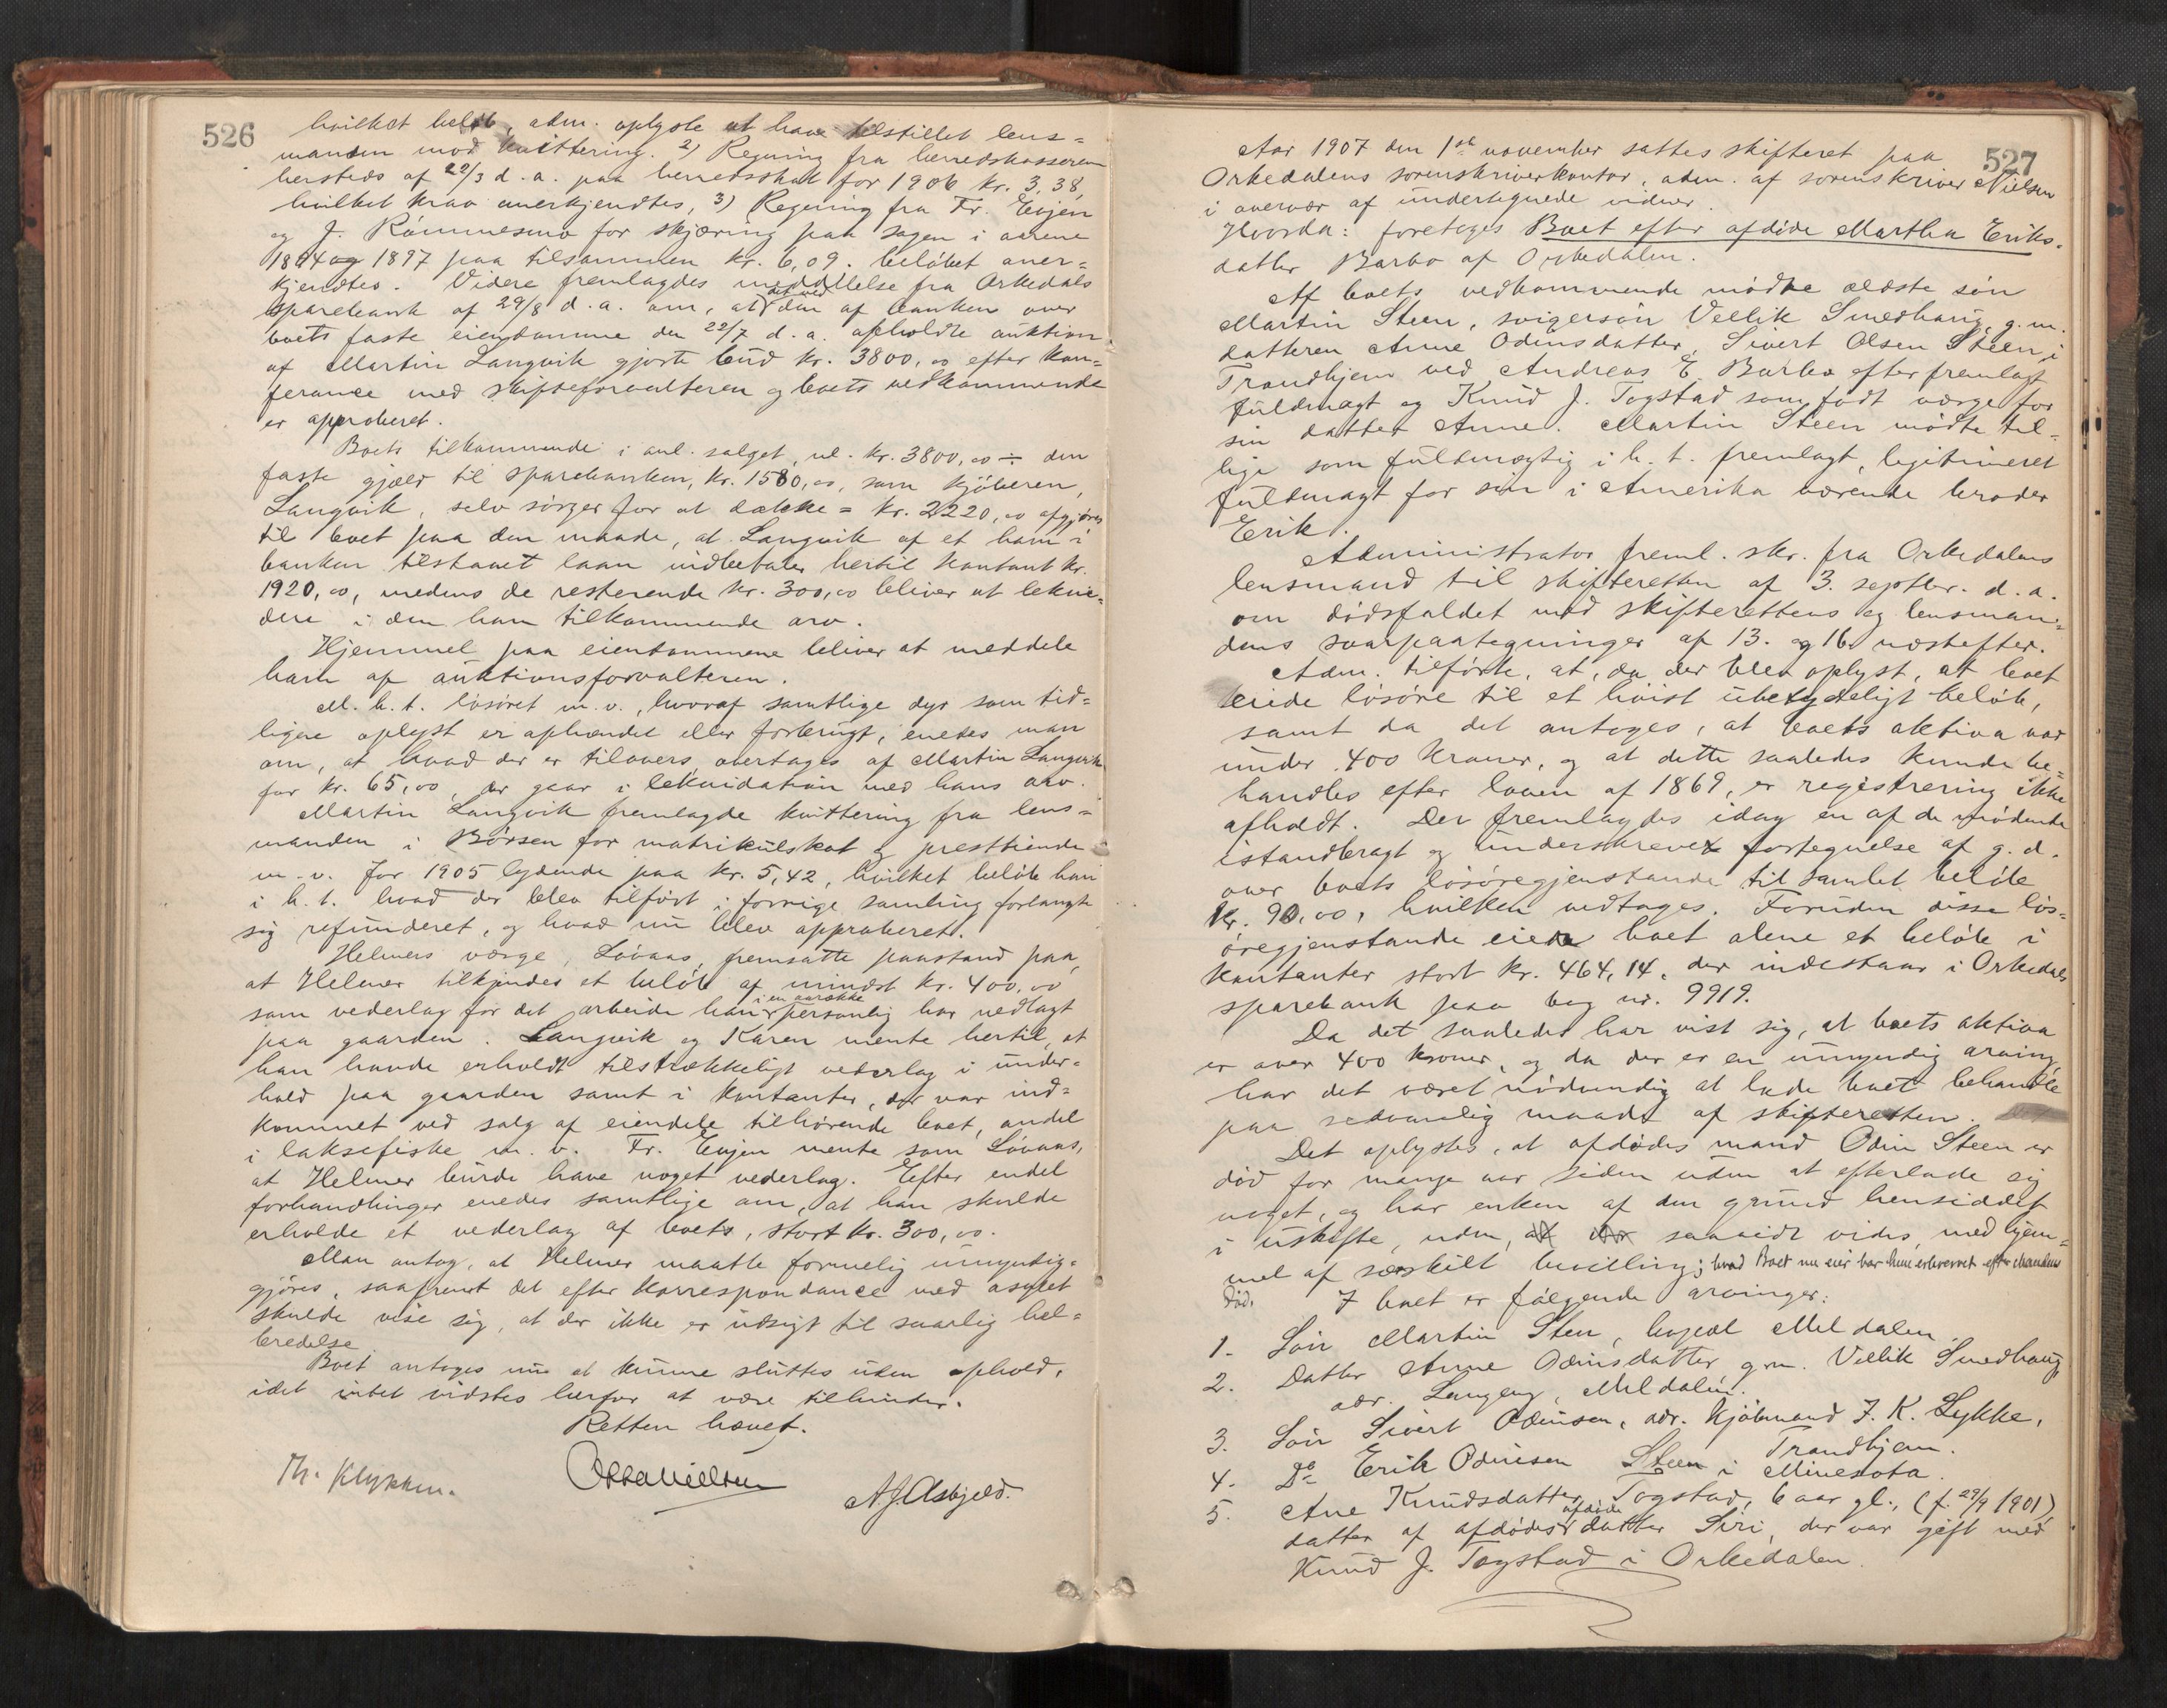 526
hvilket beløb, adm. oplyste at have tilstillet lens-
manden mod kvittering. 2) Regning fra herredskasseren
hersteds af 22/3 d. a. paa herredsskat for 1906 kr. 3,38,
hvilket krav anerkjendtes, 3) Regning fra Fr. Evjen
og J. Rømmesmo for skjæring paa sagen i aarene
1894 og 1897 paa tilsammen kr. 6,09. beløbet aner-
kjendtes. Videre fremlagdes meddelelse fra Orkedals
sparebank af 29/8 d. a. om, at det ved den af banken over
boets faste eiendomme den 22/7 d. a. afholdte auktion
af Martin Langvik gjorte bud kr. 3800,00 efter kon-
ferance med skifteforvalteren og boets vedkommende
er approberet.
Boets tilkommende i anl. salget, nl. kr. 3800,00 ÷ den
faste gjæld til sparebanken, kr. 1580,00, som kjøberen,
Langvik, selv sørger for at dække = kr. 2220,00 afgjøres
til boet paa den maade, at Langvik af et ham i
banken tilstaaet laan indbetaler hertil kontant kr.
1920,00, medens de resterende kr. 300,00 bliver at lekvi-
dere i den ham tilkommende arv.
Hjemmel paa eiendommene bliver at meddele
ham af auktionsforvalteren.
M. h. t. løsøret m. v., hvoraf samtlige dyr som tid-
ligere oplyst er afhændet eller forbrugt, enedes man
om, at hvad der er tilovers, overtages af Martin Langvik
for kr. 65,00, der gaar i lekvidation med hans arv.
Martin Langvik fremlagde kvittering fra lens-
manden i Børsen for matrikulskat og presttiende
m. v. for 1905 lydende paa kr. 5,42, hvilket beløb han
i h. t. hvad der blev tilført i forrige samling forlangte
sig refunderet, og hvad nu blev approberet.
Helmers værge, Løvaas, fremsatte paastand paa,
at Helmer tilkjendes et beløb af mindst kr. 400,00
som vederlag for det arbeide han i en aarrække personlig har nedlagt
paa gaarden. Langvik og Karen mente hertil, at
han havde erholdt tilstrækkeligt vederlag i under-
hold paa gaarden samt i kontanter, der var ind-
kommet ved salg af eiendele tilhørende boet, andel
i laksefiske m. v. Fr. Evjen mente som Løvaas,
at Helmer burde have noget vederlag. Efter endel
forhandlinger enedes samtlige om, at han skulde
erholde et vederlag af boets, stort kr. 300,00.
Man antog, at Helmer maatte formelig umyndig-
gjøres, saafremt det efter korrespondance med asylet
skulde vise sig, at der ikke er udsigt til snarlig hel-
bredelse
Boet antoges nu at kunne sluttes uden ophold,
idet intet vidstes herfor at være tilhinder.
Retten hævet.
Th. Klykken. Otto Nielsen A. J. Asbjeld.
527
Aar 1907 den 1ste november sattes skifteret paa
Orkedalens sorenskriverkontor, adm. af sorenskriver Nielsen
i overvær af undertegnede vidner.
Hvorda: foretoges Boet efter afdøde Martha Eriks-
datter Barbo af Orkedalen.
Af boets vedkommende mødte ældste søn
Martin Steen, svigersøn Vellik Smedhaug, g. m.
datteren Anne Odinsdatter, Sivert Olsen Steen i
Trondhjem ved Andreas E. Barbo efter fremlagt
fuldmagt og Knud J. Togstad som født værge for
sin datter Anne. Martin Steen mødte til-
lige som fuldmægtig i h. t. fremlagt, legitimeret
fuldmagt for sin i Amerika værende broder
Erik.
Administrator freml. skr. fra Orkedalens
lensmand til skifteretten af 3. septbr. d. a.
om dødsfaldet med skifterettens og lensman-
dens svarpaategninger af 13. og 16. næstefter.
Adm. tilførte, at, da der blev oplyst, at boet
eiede løsøre til et høist ubetydeligt beløb,
samt da det antoges, at boets aktiva var
under 400 kroner, og at dette saaledes kunde be-
handles efter loven af 1869, er registrering ikke
afholdt. Der fremlagdes idag en af de mødende
istandbragt og underskrevet fortegnelse af g. d.
over boets løsøregjenstande til samlet beløb
kr. 90,00, hvilken vedtages. Foruden disse løs-
øregjenstande eier boet alene et beløb i
kontanter stort kr. 464,14, der indestaar i Orkedals
sparebank paa bog nr. 9919.
Da det saaledes har vist sig, at boets aktiva
er over 400 kroner, og da der er en umyndig arving,
har det været nødvendig at lade boet behandle
paa sedvanlig maade af skifteretten.
Det oplystes, at afdødes mand Odin Steen er
død for mange aar siden uden at efterlade sig
noget, og har enken af den grund hensiddet
i uskifte, uden, saavidt vides, med hjem-
mel af særskilt bevilling; hvad Boet nu eier har hun erhvervet efter Mandens
Død.
I boet er følgende arvinger:
1. Søn Martin Sten, bopæl Meldalen.
2. Datter Anne Odinsdatter, g. m. Vellik Smedhaug,
adr. Langeng, Meldalen.
3. Søn Sivert Odinsen, adr. Kjøbmand J. K. Lykke,
Trondhjem.
4. Do Erik Odinsen Steen i Minesota.
5. Ane Knudsdatter Togstad, 6 aar gl., (f. 29/9 1901),
datter af afdødes afdøde datter Siri, der var gift med
Knud J. Togstad i Orkedalen.